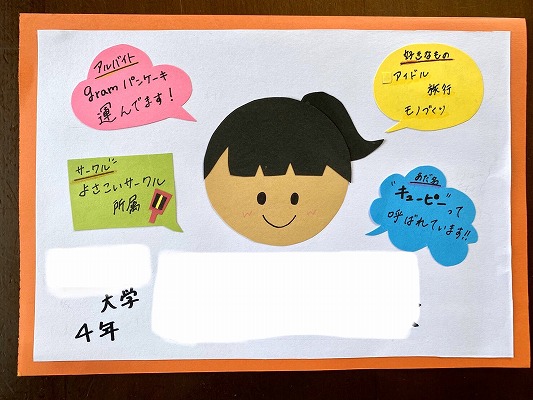 アルバイト
gram パンケーキ
運んでます!
好きなもの
アイドル
旅行
モノづくり
サークル
よさこいサークル
所属
あだ名
"キューピー"って
呼ばれています!!
大学
4年